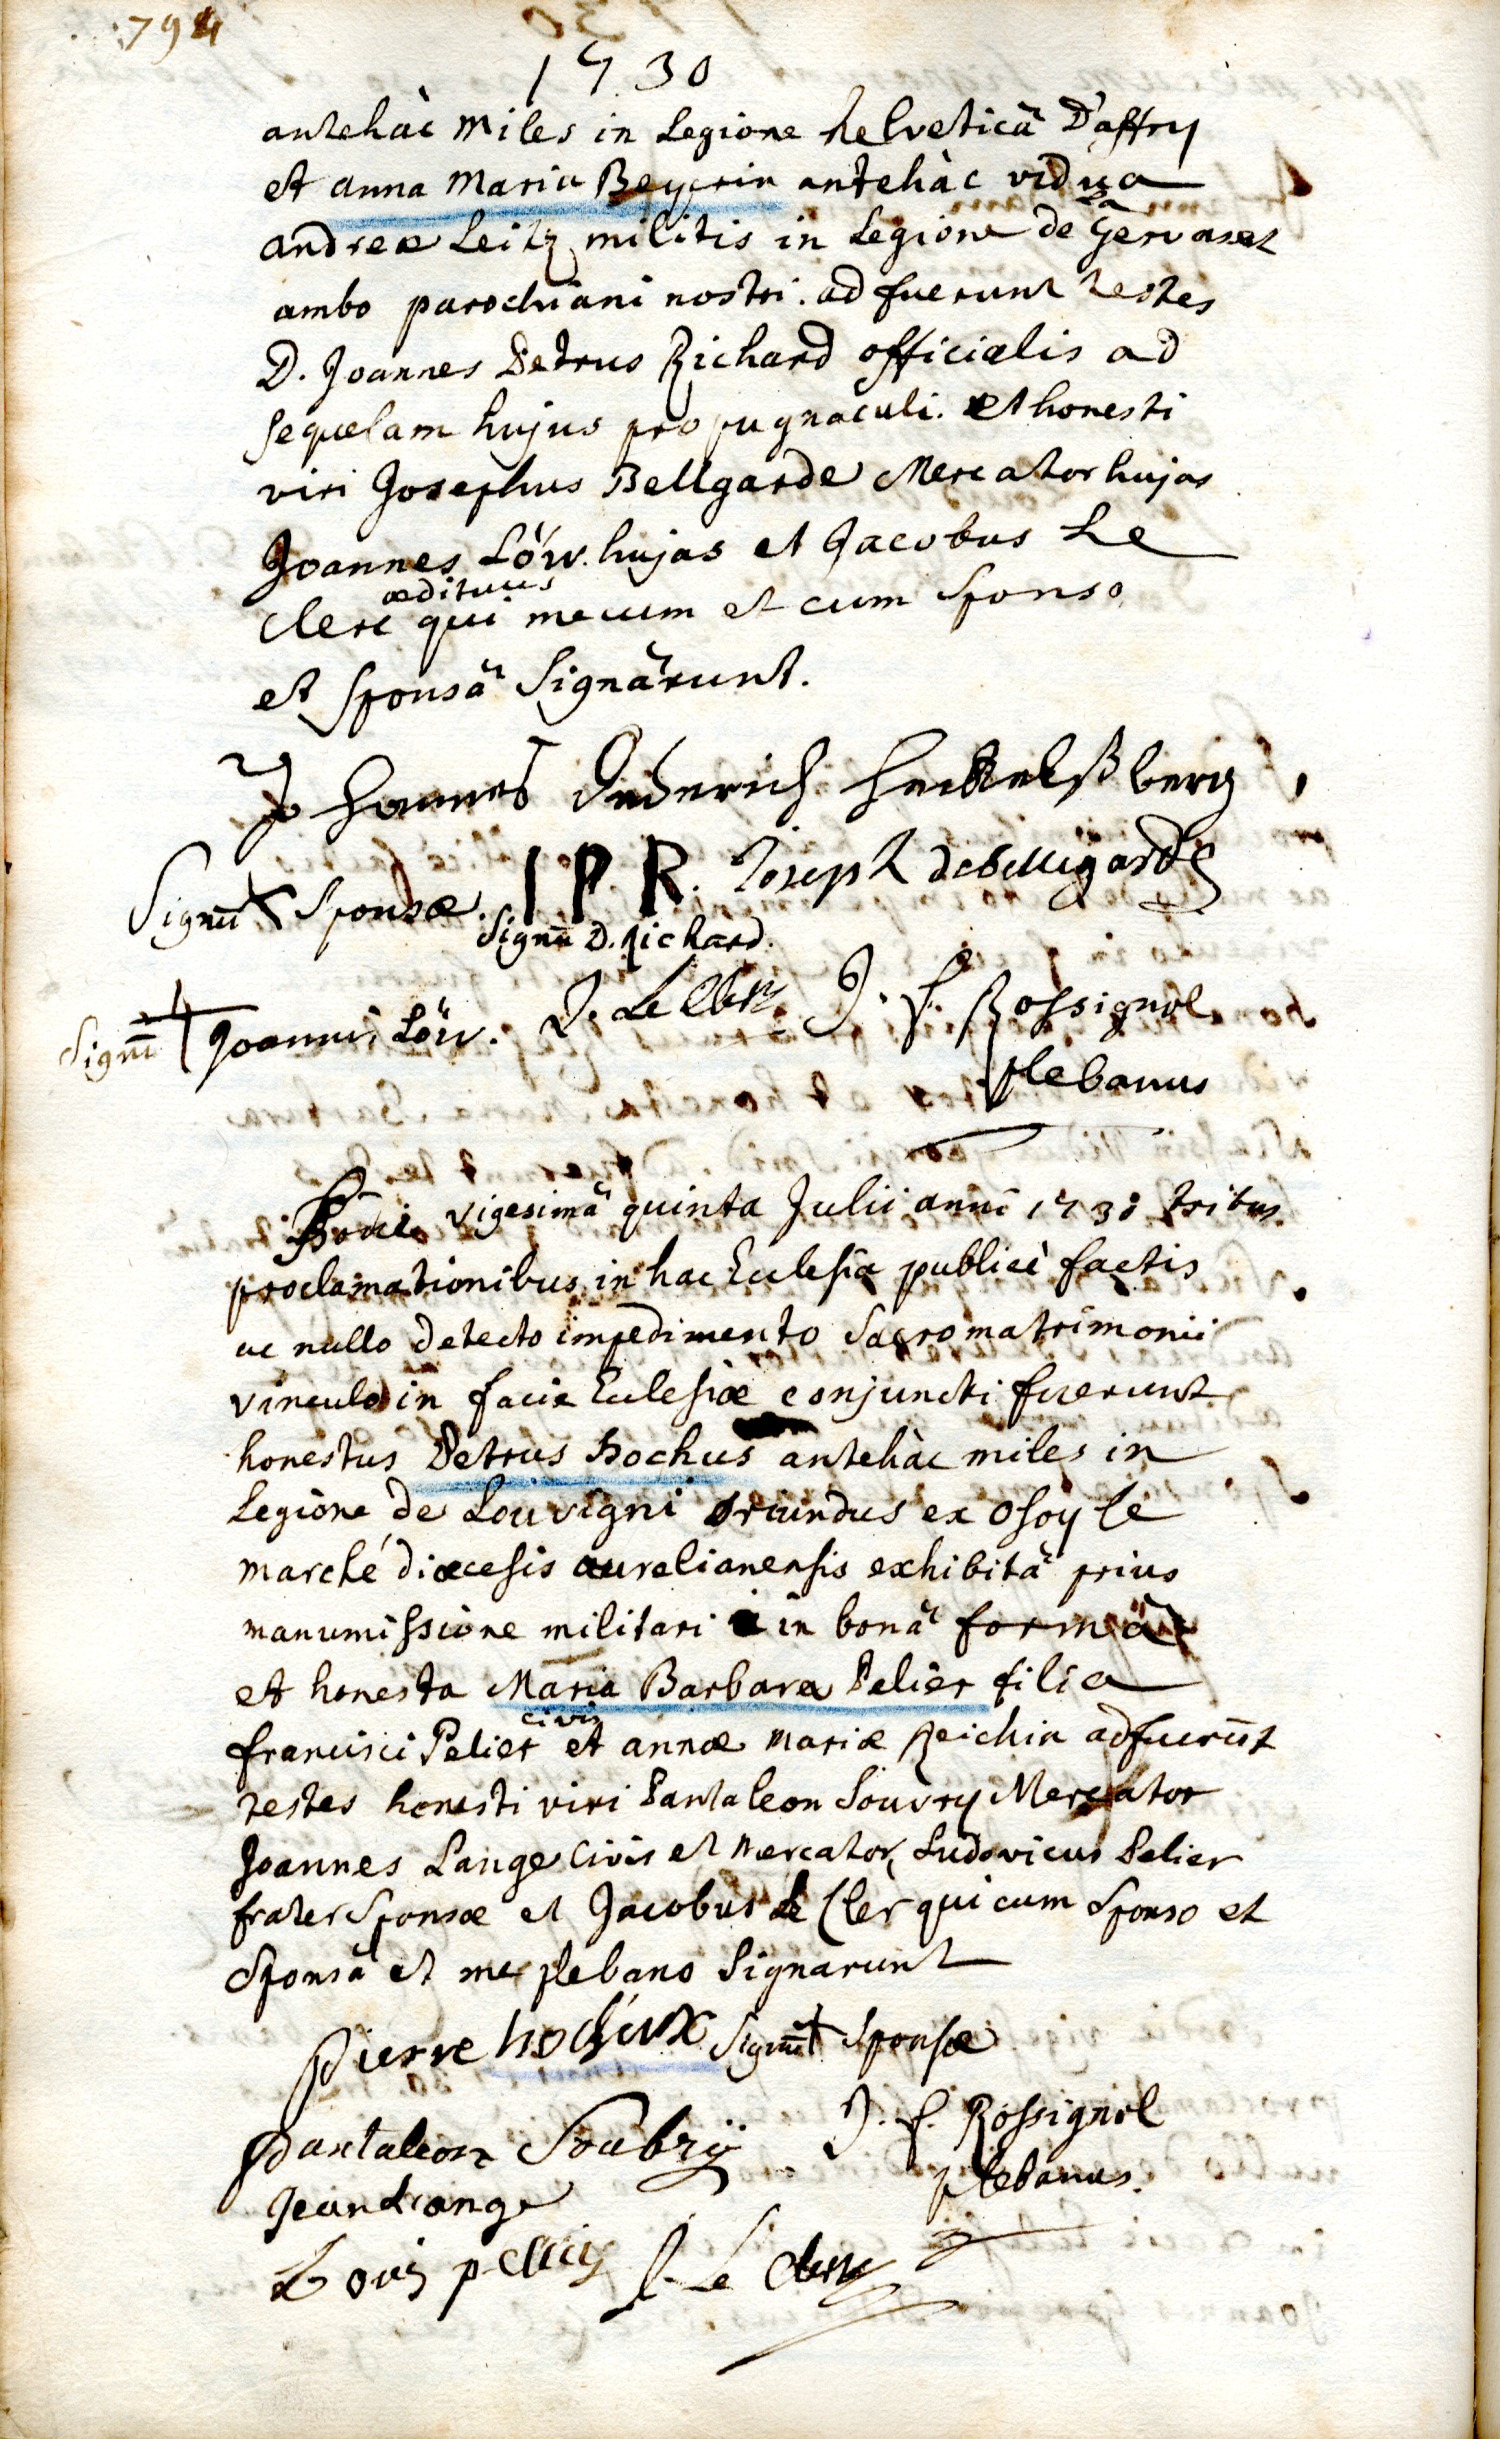 794
1730
antehàc miles in Legione helveticâ D'affry
et anna Maria Beyerin antehàc vidua
andreæ Leitz militis in Legione de la Gervaset
ambo parochiani nostri. adfuerunt testes
D. Joannes Petrus Richard officialis ad
sequelam hujus propugnaculi. et honesti
viri Josephus Bellgarde Mercator hujas
Joannes Löw. hujas et Jacobus Le
ædituus
Clerc qui mecum et cum Sponso
et Sponsâ Signârunt.
Johannes Diderich
Signū Sponsæ. I P R. Joseph debellegarde
Signū D. Richard.
Signū Joannis Löw. J. Le Clerc J. f. Rossignol
plebanus
Hodie vigesimâ quinta Julii anni 1730 tribus
proclamationibus in hac Ecclesia publicè factis
ac nullo detecto impedimento Sacro matrimonii
vinculo in facie Ecclesiæ conjuncti fuerunt
honestus Petrus Hochus antehàc miles in
Legione de Louvigni oriundus ex Osoy le
marché diœcesis aurelianensis exhibitâ prius
manumissione militari in bonâ formâ
et honesta Maria Barbara Pelier filia
civis
francisci Pelier et annæ Mariæ Reichin adfuerūt
testes honesti viri Pantaleon Souvry Mercator
Joannes Lange Civis et Mercator, Ludovicus Pelier
frater Sponsæ et Jacobus Le Cler qui cum Sponso et
Sponsâ et me plebano Signarunt
pierre hochux Signū Sponsæ
Pantaleon Soubrÿ J. f. Rossignol
plebanus.
Jean Lange
Louis J. Le Clerc